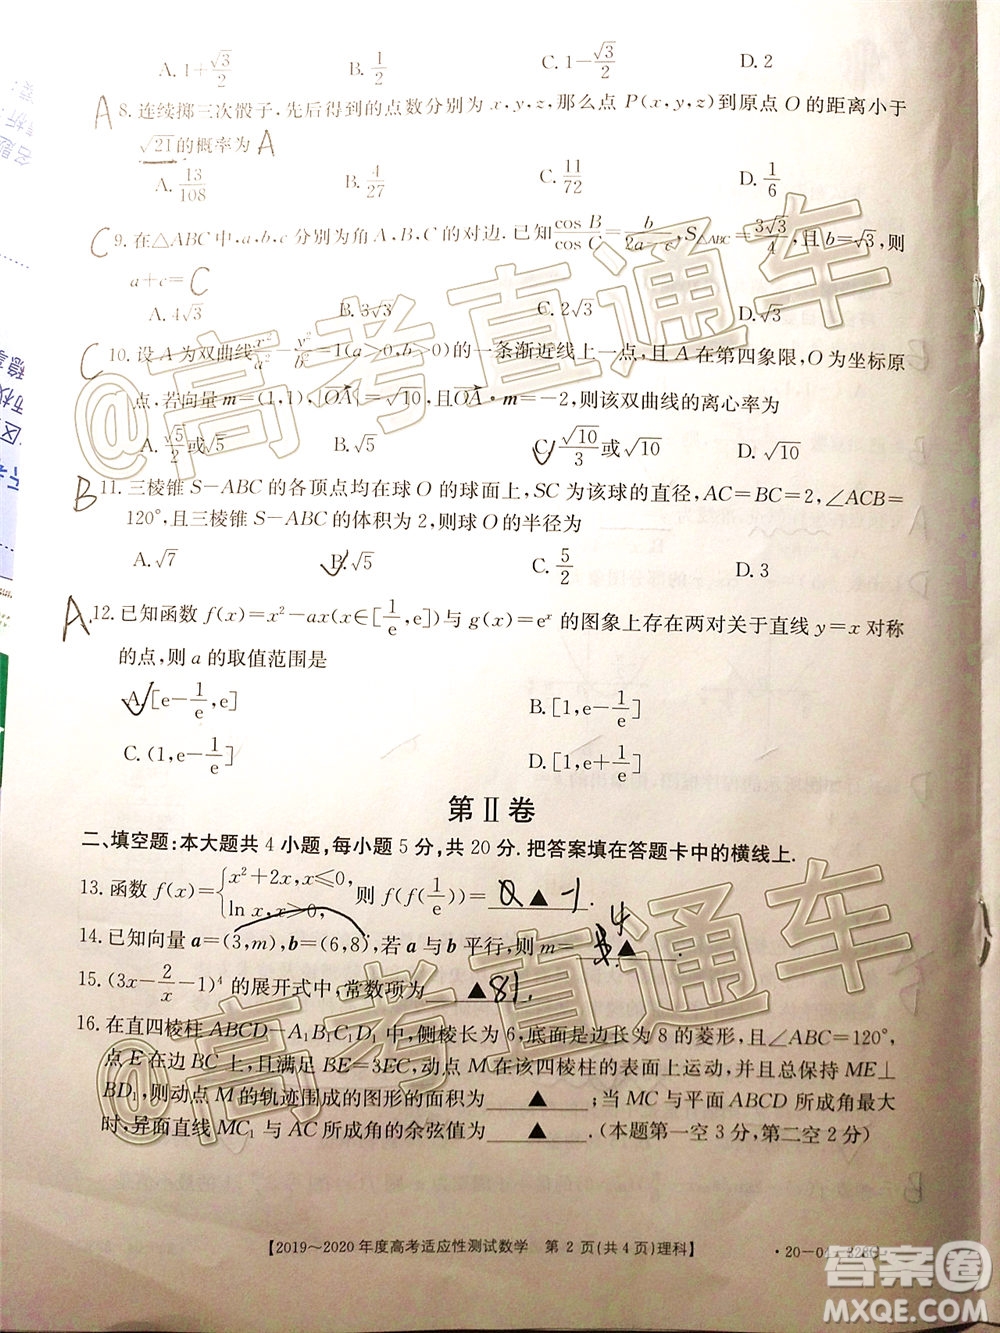 A. 1+√3/2 B. 1/2 C. 1-√3/2 D. 2
A 8. 连续掷三次骰子,先后得到的点数分别为 x,y,z,那么点 P(x,y,z)到原点 O 的距离小于
√21的概率为 A
A. 13/108 B. 4/27 C. 11/72 D. 1/6
C 9. 在△ABC 中,a,b,c 分别为角 A,B,C 的对边. 已知 cos B/cos C = b/(2a-c), S△ABC = 3√3/4, 且 b=√3, 则
a+c= C
A. 4√3 B. 3√3 C. 2√3 D. √3
C 10. 设 A 为双曲线 x²/a² - y²/b² =1(a>0,b>0)的一条渐近线上一点,且 A 在第四象限,O 为坐标原
点,若向量 m=(1,1),|OA|=√10,且OA·m=-2,则该双曲线的离心率为
A. √5/2 或√5 B. √5 C. √10/3 或√10 D. √10
B 11. 三棱锥 S-ABC 的各顶点均在球 O 的球面上,SC 为该球的直径,AC=BC=2,∠ACB=
120°,且三棱锥 S-ABC 的体积为 2,则球 O 的半径为
A. √7 B. √5 C. 5/2 D. 3
A 12. 已知函数 f(x)=x²-ax(x∈[1/e,e])与 g(x)=eˣ 的图象上存在两对关于直线 y=x 对称
的点,则 a 的取值范围是
A. [e-1/e,e] B. [1,e-1/e]
C. (1,e-1/e] D. [1,e+1/e]
第Ⅱ卷
二、填空题:本大题共 4 小题,每小题 5 分,共 20 分. 把答案填在答题卡中的横线上.
13. 函数 f(x)={x²+2x,x≤0, ln x,x>0, 则 f(f(1/e))= ▲ -1.
14. 已知向量 a=(3,m),b=(6,8),若 a 与 b 平行,则 m= ▲ 4.
15. (3x-2/x-1)⁴ 的展开式中,常数项为 ▲ 81.
16. 在直四棱柱 ABCD-A₁B₁C₁D₁ 中,侧棱长为 6,底面是边长为 8 的菱形,且∠ABC=120°,
点 E 在边 BC 上,且满足 BE=3EC,动点 M 在该四棱柱的表面上运动,并且总保持 ME⊥
BD₁,则动点 M 的轨迹围成的图形的面积为 ▲ ;当 MC 与平面 ABCD 所成角最大
时,异面直线 MC₁ 与 AC 所成角的余弦值为 ▲ .(本题第一空 3 分,第二空 2 分)
【2019~2020 年度高考适应性测试数学 第 2 页(共 4 页)理科】
@高考直通车
@高考直通车
答案圈
MXQE.COM